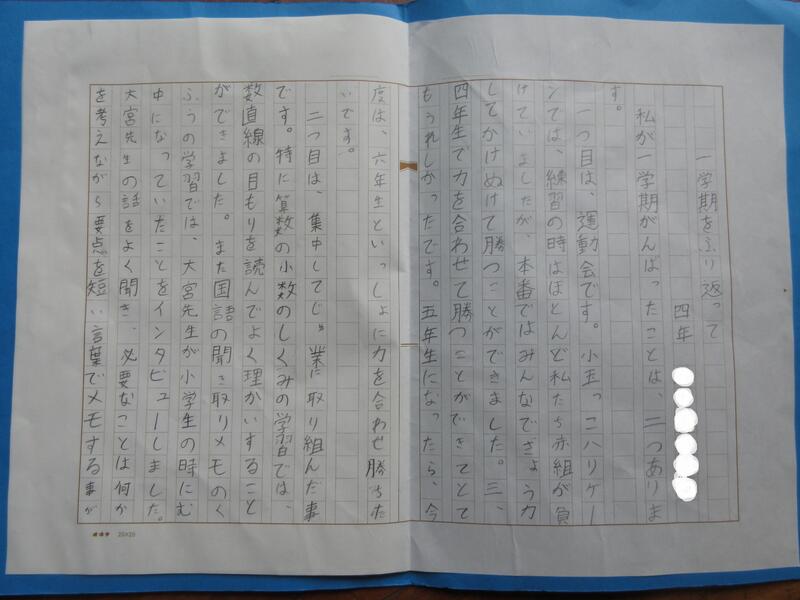 一学期をふり返って
四年
私が一学期がんばったことは、二つありま
す。
一つ目は、運動会です。小玉っこハリケー
ンでは、練習の時はほとんど私たち赤組が負
けていましたが、本番ではみんなできょう力
してかけぬけて勝つことができました。三、
四年生で力を合わせて勝つことができてとて
もうれしかったです。五年生になったら、今
度は、六年生といっしょに力を合わせ勝ちた
いです。
二つ目は、集中してじゅ業に取り組んだ事
です。特に算数の小数のしくみの学習では、
数直線の目もりを読んでよく理かいすること
ができました。また国語の聞き取りメモのく
ふうの学習では、大宮先生が小学生の時にむ
中になっていたことをインタビューしました。
大宮先生の話をよく聞き、必要なことは何か
を考えながら要点を短い言葉でメモする事が
20×20